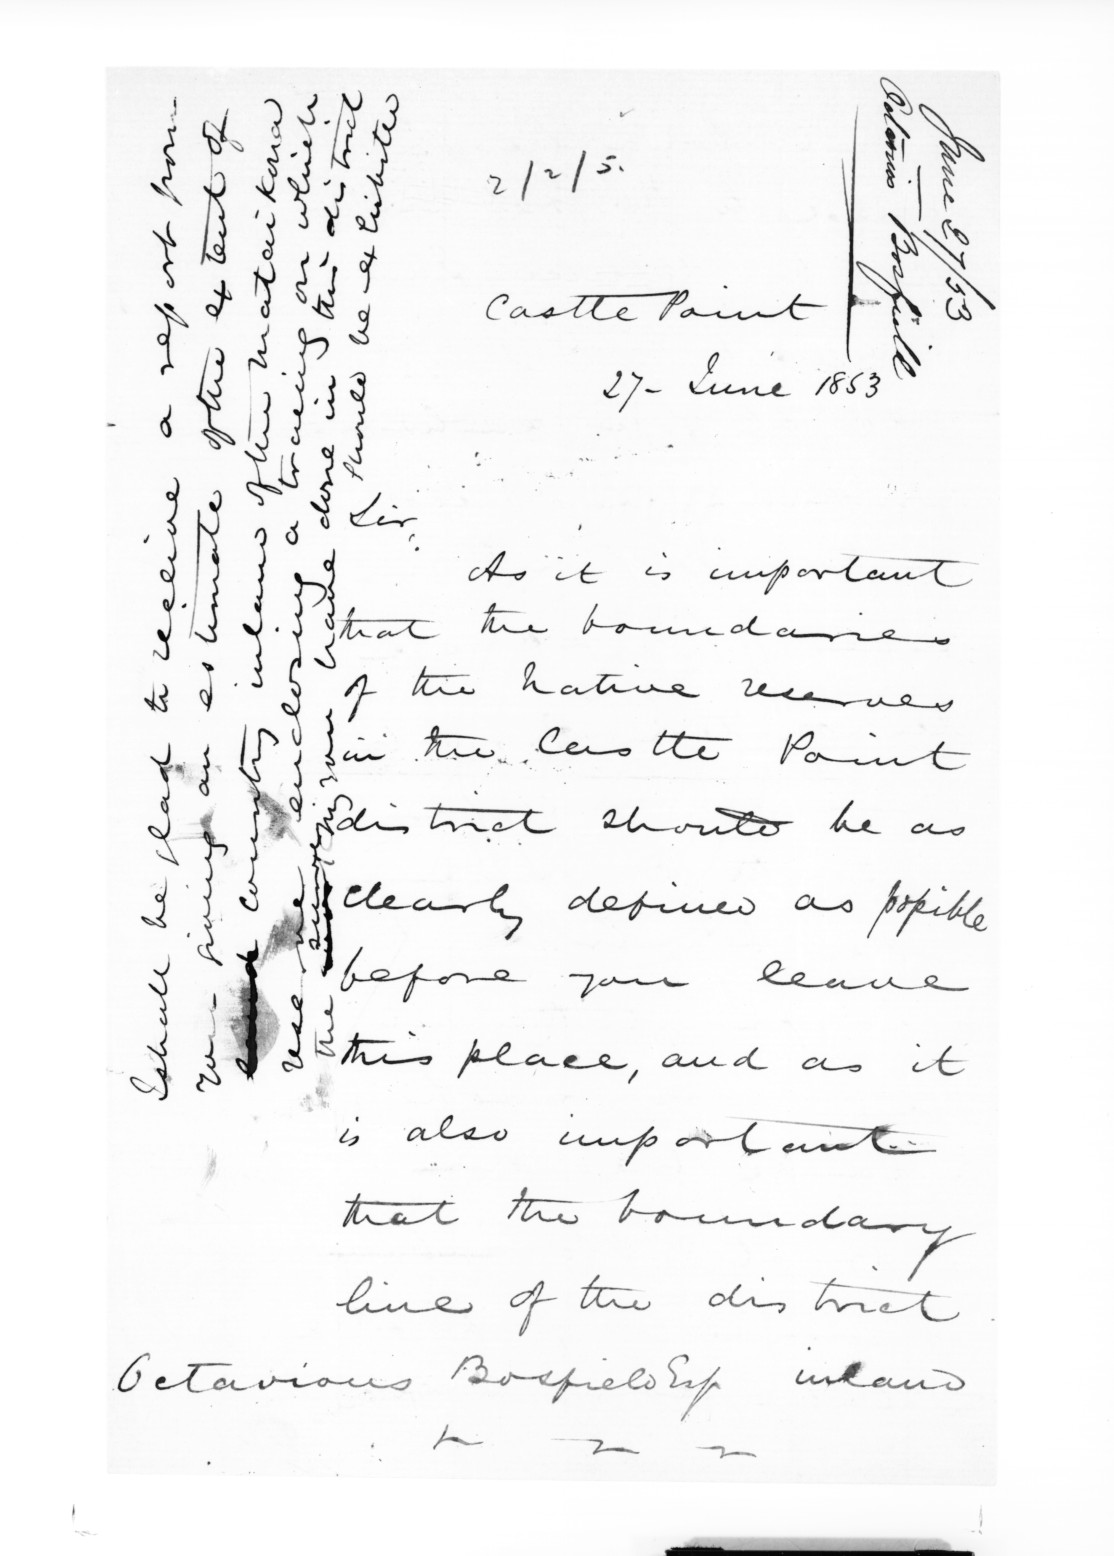 June 27/53
Octavious Bosfield
2/2/5.
Castle Point
27 - June 1853
Sir,
As it is important
that the boundaries
of the Native reserves
in the Castle Point
district should be as
clearly defined as possible
before you leave
this place, and as it
is also important
that the boundary
line of the district
Octavious Bosfield Esq inland
I shall be glad to receive a report from
you giving an estimate of the extent of
country inland of the Mataikona
enclosing a tracing on which
the surveying you have done in this district
should be exhibited